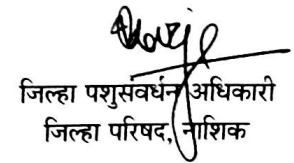 जिल्हा पशुसंवर्धन अधिकारी
जिल्हा परिषद, नाशिक